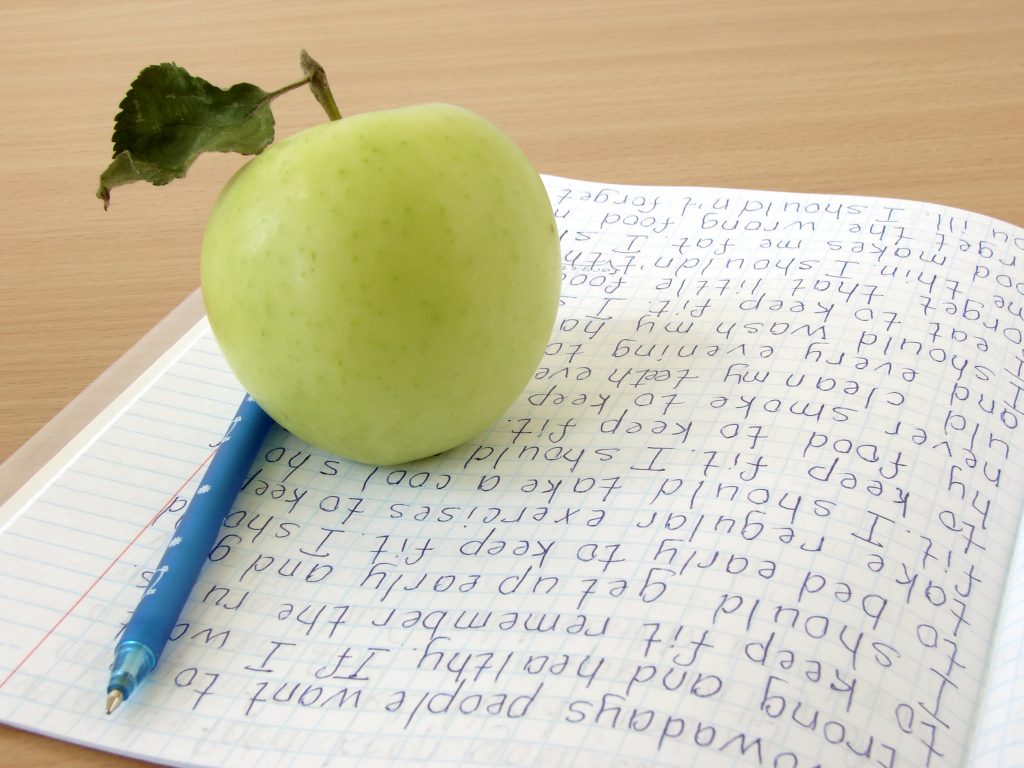 owadays people want to
trong and healthy. If I wa
to keep fit remember the ru
I should get up early and g
to bed early to keep fit. I sho
take regular exercises to keep
fit. I should take a cool sho
to keep fit.
hy food to keep fit.
never smoke to keep
uld clean my teeth eve
and every evening to
I should wash my ha
eat to keep fit. I
orget that little food
me thin. I shouldn't
ood makes me fat. If
rget the wrong food
ou ill. I shouldn't forget